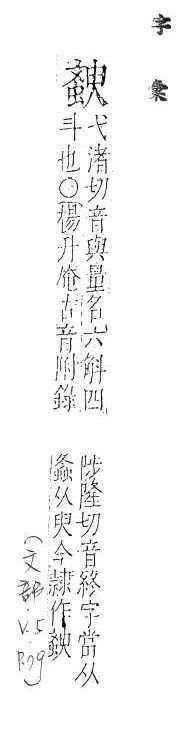 字彙
弋渚切音與量名六斛四
斗也〇楊升庵古音附錄
陟隆切音終字當从
螽从臾今隸作
(文部 V.5 P.79)